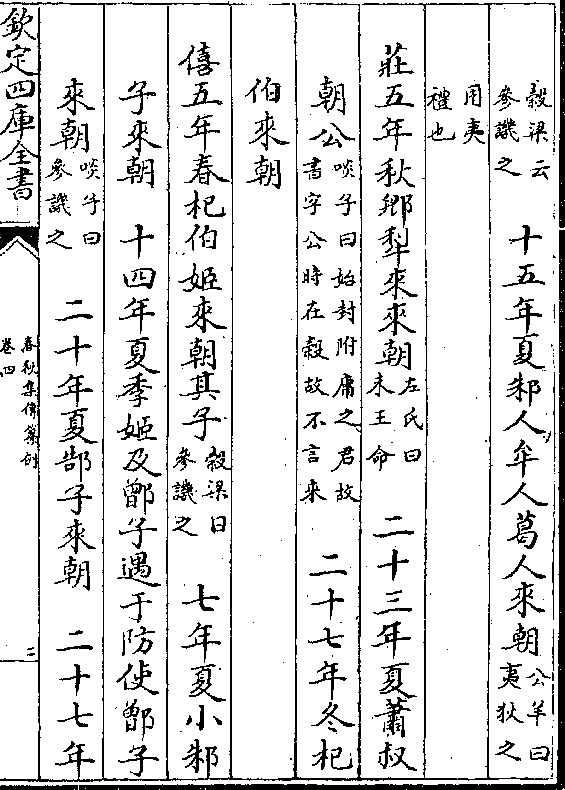 穀梁云參譏之 十五年夏邾人牟人葛人來朝公羊曰夷狄之
用夷禮也
莊五年秋鄉犁來來朝左氏曰未王命 二十三年夏蕭叔
朝公啖子曰始封附庸之君故書字公時在穀故不言來 二十七年冬杞
伯來朝
僖五年春杞伯姬來朝其子穀梁曰參譏之 七年夏小邾
子來朝 十四年夏季姬及鄫子遇于防使鄫子
來朝啖子曰參譏之 二十年夏郜子來朝 二十七年
欽定四庫全書
春秋集傳纂例
卷四
三